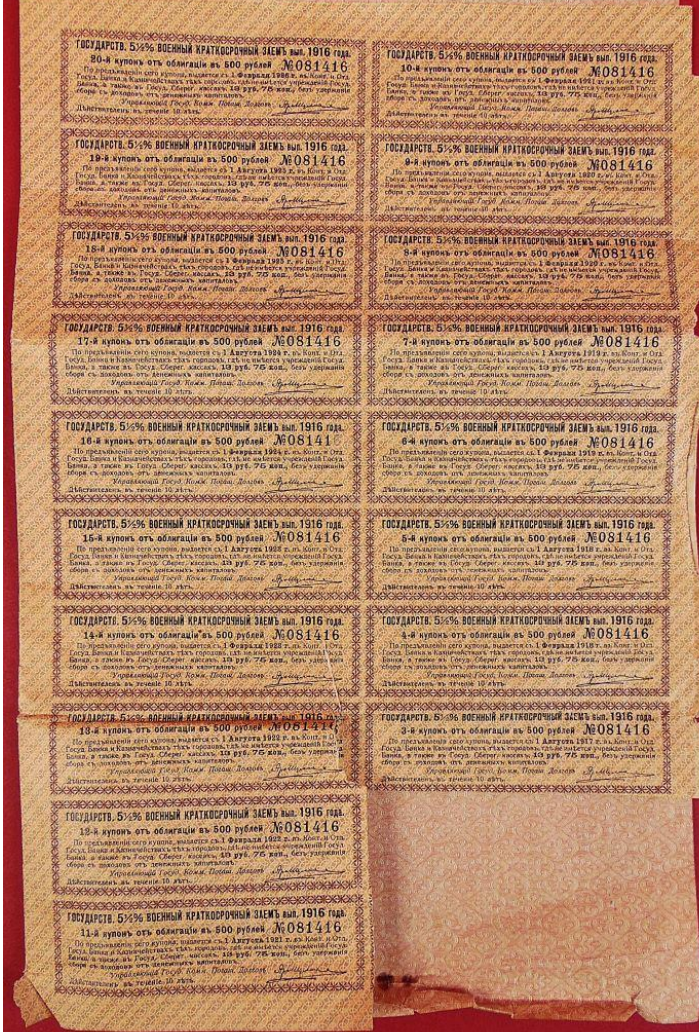 ГОСУДАРСТВ. 5½% ВОЕННЫЙ КРАТКОСРОЧНЫЙ ЗАЕМЪ вып. 1916 года.
20-й купонъ отъ облигаціи въ 500 рублей №081416
По предъявленіи сего купона, выдается съ 1 Февраля 1926 г. въ Конт. и Отд.
Госуд. Банка и Казначействахъ тѣхъ городовъ, гдѣ не имѣется учрежденій Госуд.
Банка, а также въ Госуд. Сберег. кассахъ, 13 руб. 75 коп., безъ удержанія
сбора съ доходовъ отъ денежныхъ капиталовъ.
Управляющій Госуд. Комм. Погаш. Долговъ
Дѣйствителенъ въ теченіе 10 лѣтъ.
ГОСУДАРСТВ. 5½% ВОЕННЫЙ КРАТКОСРОЧНЫЙ ЗАЕМЪ вып. 1916 года.
19-й купонъ отъ облигаціи въ 500 рублей №081416
По предъявленіи сего купона, выдается съ 1 Августа 1925 г. въ Конт. и Отд.
Госуд. Банка и Казначействахъ тѣхъ городовъ, гдѣ не имѣется учрежденій Госуд.
Банка, а также въ Госуд. Сберег. кассахъ, 13 руб. 75 коп., безъ удержанія
сбора съ доходовъ отъ денежныхъ капиталовъ.
Управляющій Госуд. Комм. Погаш. Долговъ
Дѣйствителенъ въ теченіе 10 лѣтъ.
ГОСУДАРСТВ. 5½% ВОЕННЫЙ КРАТКОСРОЧНЫЙ ЗАЕМЪ вып. 1916 года.
18-й купонъ отъ облигаціи въ 500 рублей №081416
По предъявленіи сего купона, выдается съ 1 Февраля 1925 г. въ Конт. и Отд.
Госуд. Банка и Казначействахъ тѣхъ городовъ, гдѣ не имѣется учрежденій Госуд.
Банка, а также въ Госуд. Сберег. кассахъ, 13 руб. 75 коп., безъ удержанія
сбора съ доходовъ отъ денежныхъ капиталовъ.
Управляющій Госуд. Комм. Погаш. Долговъ
Дѣйствителенъ въ теченіе 10 лѣтъ.
ГОСУДАРСТВ. 5½% ВОЕННЫЙ КРАТКОСРОЧНЫЙ ЗАЕМЪ вып. 1916 года.
17-й купонъ отъ облигаціи въ 500 рублей №081416
По предъявленіи сего купона, выдается съ 1 Августа 1924 г. въ Конт. и Отд.
Госуд. Банка и Казначействахъ тѣхъ городовъ, гдѣ не имѣется учрежденій Госуд.
Банка, а также въ Госуд. Сберег. кассахъ, 13 руб. 75 коп., безъ удержанія
сбора съ доходовъ отъ денежныхъ капиталовъ.
Управляющій Госуд. Комм. Погаш. Долговъ
Дѣйствителенъ въ теченіе 10 лѣтъ.
ГОСУДАРСТВ. 5½% ВОЕННЫЙ КРАТКОСРОЧНЫЙ ЗАЕМЪ вып. 1916 года.
16-й купонъ отъ облигаціи въ 500 рублей №08141
По предъявленіи сего купона, выдается съ 1 Февраля 1924 г. въ Конт. и Отд.
Госуд. Банка и Казначействахъ тѣхъ городовъ, гдѣ не имѣется учрежденій Госуд.
Банка, а также въ Госуд. Сберег. кассахъ, 13 руб. 75 коп., безъ удержанія
сбора съ доходовъ отъ денежныхъ капиталовъ.
Управляющій Госуд. Комм. Погаш. Долговъ
Дѣйствителенъ въ теченіе 10 лѣтъ.
ГОСУДАРСТВ. 5½% ВОЕННЫЙ КРАТКОСРОЧНЫЙ ЗАЕМЪ вып. 1916 года.
15-й купонъ отъ облигаціи въ 500 рублей №081416
По предъявленіи сего купона, выдается съ 1 Августа 1923 г. въ Конт. и Отд.
Госуд. Банка и Казначействахъ тѣхъ городовъ, гдѣ не имѣется учрежденій Госуд.
Банка, а также въ Госуд. Сберег. кассахъ, 13 руб. 75 коп., безъ удержанія
сбора съ доходовъ отъ денежныхъ капиталовъ.
Управляющій Госуд. Комм. Погаш. Долговъ
Дѣйствителенъ въ теченіе 10 лѣтъ.
ГОСУДАРСТВ. 5½% ВОЕННЫЙ КРАТКОСРОЧНЫЙ ЗАЕМЪ вып. 1916 года.
14-й купонъ отъ облигаціи въ 500 рублей №081416
По предъявленіи сего купона, выдается съ 1 Февраля 1923 г. въ Конт. и Отд.
Госуд. Банка и Казначействахъ тѣхъ городовъ, гдѣ не имѣется учрежденій Госуд.
Банка, а также въ Госуд. Сберег. кассахъ, 13 руб. 75 коп., безъ удержанія
сбора съ доходовъ отъ денежныхъ капиталовъ.
Управляющій Госуд. Комм. Погаш. Долговъ
Дѣйствителенъ въ теченіе 10 лѣтъ.
ГОСУДАРСТВ. 5½% ВОЕННЫЙ КРАТКОСРОЧНЫЙ ЗАЕМЪ вып. 1916 года.
13-й купонъ отъ облигаціи въ 500 рублей №081416
По предъявленіи сего купона, выдается съ 1 Августа 1922 г. въ Конт. и Отд.
Госуд. Банка и Казначействахъ тѣхъ городовъ, гдѣ не имѣется учрежденій Госуд.
Банка, а также въ Госуд. Сберег. кассахъ, 13 руб. 75 коп., безъ удержанія
сбора съ доходовъ отъ денежныхъ капиталовъ.
Управляющій Госуд. Комм. Погаш. Долговъ
Дѣйствителенъ въ теченіе 10 лѣтъ.
ГОСУДАРСТВ. 5½% ВОЕННЫЙ КРАТКОСРОЧНЫЙ ЗАЕМЪ вып. 1916 года.
12-й купонъ отъ облигаціи въ 500 рублей №081416
По предъявленіи сего купона, выдается съ 1 Февраля 1922 г. въ Конт. и Отд.
Госуд. Банка и Казначействахъ тѣхъ городовъ, гдѣ не имѣется учрежденій Госуд.
Банка, а также въ Госуд. Сберег. кассахъ, 13 руб. 75 коп., безъ удержанія
сбора съ доходовъ отъ денежныхъ капиталовъ.
Управляющій Госуд. Комм. Погаш. Долговъ
Дѣйствителенъ въ теченіе 10 лѣтъ.
ГОСУДАРСТВ. 5½% ВОЕННЫЙ КРАТКОСРОЧНЫЙ ЗАЕМЪ вып. 1916 года.
11-й купонъ отъ облигаціи въ 500 рублей №081416
По предъявленіи сего купона, выдается съ 1 Августа 1921 г. въ Конт. и Отд.
Госуд. Банка и Казначействахъ тѣхъ городовъ, гдѣ не имѣется учрежденій Госуд.
Банка, а также въ Госуд. Сберег. кассахъ, 13 руб. 75 коп., безъ удержанія
сбора съ доходовъ отъ денежныхъ капиталовъ.
Управляющій Госуд. Комм. Погаш. Долговъ
Дѣйствителенъ въ теченіе 10 лѣтъ.
ГОСУДАРСТВ. 5½% ВОЕННЫЙ КРАТКОСРОЧНЫЙ ЗАЕМЪ вып. 1916 года.
10-й купонъ отъ облигаціи въ 500 рублей №081416
По предъявленіи сего купона, выдается съ 1 Февраля 1921 г. въ Конт. и Отд.
Госуд. Банка и Казначействахъ тѣхъ городовъ, гдѣ не имѣется учрежденій Госуд.
Банка, а также въ Госуд. Сберег. кассахъ, 13 руб. 75 коп., безъ удержанія
сбора съ доходовъ отъ денежныхъ капиталовъ.
Управляющій Госуд. Комм. Погаш. Долговъ
Дѣйствителенъ въ теченіе 10 лѣтъ.
ГОСУДАРСТВ. 5½% ВОЕННЫЙ КРАТКОСРОЧНЫЙ ЗАЕМЪ вып. 1916 года.
9-й купонъ отъ облигаціи въ 500 рублей №081416
По предъявленіи сего купона, выдается съ 1 Августа 1920 г. въ Конт. и Отд.
Госуд. Банка и Казначействахъ тѣхъ городовъ, гдѣ не имѣется учрежденій Госуд.
Банка, а также въ Госуд. Сберег. кассахъ, 13 руб. 75 коп., безъ удержанія
сбора съ доходовъ отъ денежныхъ капиталовъ.
Управляющій Госуд. Комм. Погаш. Долговъ
Дѣйствителенъ въ теченіе 10 лѣтъ.
ГОСУДАРСТВ. 5½% ВОЕННЫЙ КРАТКОСРОЧНЫЙ ЗАЕМЪ вып. 1916 года.
8-й купонъ отъ облигаціи въ 500 рублей №081416
По предъявленіи сего купона, выдается съ 1 Февраля 1920 г. въ Конт. и Отд.
Госуд. Банка и Казначействахъ тѣхъ городовъ, гдѣ не имѣется учрежденій Госуд.
Банка, а также въ Госуд. Сберег. кассахъ, 13 руб. 75 коп., безъ удержанія
сбора съ доходовъ отъ денежныхъ капиталовъ.
Управляющій Госуд. Комм. Погаш. Долговъ
Дѣйствителенъ въ теченіе 10 лѣтъ.
ГОСУДАРСТВ. 5½% ВОЕННЫЙ КРАТКОСРОЧНЫЙ ЗАЕМЪ вып. 1916 года.
7-й купонъ отъ облигаціи въ 500 рублей №081416
По предъявленіи сего купона, выдается съ 1 Августа 1919 г. въ Конт. и Отд.
Госуд. Банка и Казначействахъ тѣхъ городовъ, гдѣ не имѣется учрежденій Госуд.
Банка, а также въ Госуд. Сберег. кассахъ, 13 руб. 75 коп., безъ удержанія
сбора съ доходовъ отъ денежныхъ капиталовъ.
Управляющій Госуд. Комм. Погаш. Долговъ
Дѣйствителенъ въ теченіе 10 лѣтъ.
ГОСУДАРСТВ. 5½% ВОЕННЫЙ КРАТКОСРОЧНЫЙ ЗАЕМЪ вып. 1916 года.
6-й купонъ отъ облигаціи въ 500 рублей №081416
По предъявленіи сего купона, выдается съ 1 Февраля 1919 г. въ Конт. и Отд.
Госуд. Банка и Казначействахъ тѣхъ городовъ, гдѣ не имѣется учрежденій Госуд.
Банка, а также въ Госуд. Сберег. кассахъ, 13 руб. 75 коп., безъ удержанія
сбора съ доходовъ отъ денежныхъ капиталовъ.
Управляющій Госуд. Комм. Погаш. Долговъ
Дѣйствителенъ въ теченіе 10 лѣтъ.
ГОСУДАРСТВ. 5½% ВОЕННЫЙ КРАТКОСРОЧНЫЙ ЗАЕМЪ вып. 1916 года.
5-й купонъ отъ облигаціи въ 500 рублей №081416
По предъявленіи сего купона, выдается съ 1 Августа 1918 г. въ Конт. и Отд.
Госуд. Банка и Казначействахъ тѣхъ городовъ, гдѣ не имѣется учрежденій Госуд.
Банка, а также въ Госуд. Сберег. кассахъ, 13 руб. 75 коп., безъ удержанія
сбора съ доходовъ отъ денежныхъ капиталовъ.
Управляющій Госуд. Комм. Погаш. Долговъ
Дѣйствителенъ въ теченіе 10 лѣтъ.
ГОСУДАРСТВ. 5½% ВОЕННЫЙ КРАТКОСРОЧНЫЙ ЗАЕМЪ вып. 1916 года.
4-й купонъ отъ облигаціи въ 500 рублей №081416
По предъявленіи сего купона, выдается съ 1 Февраля 1918 г. въ Конт. и Отд.
Госуд. Банка и Казначействахъ тѣхъ городовъ, гдѣ не имѣется учрежденій Госуд.
Банка, а также въ Госуд. Сберег. кассахъ, 13 руб. 75 коп., безъ удержанія
сбора съ доходовъ отъ денежныхъ капиталовъ.
Управляющій Госуд. Комм. Погаш. Долговъ
Дѣйствителенъ въ теченіе 10 лѣтъ.
ГОСУДАРСТВ. 5½% ВОЕННЫЙ КРАТКОСРОЧНЫЙ ЗАЕМЪ вып. 1916 года.
3-й купонъ отъ облигаціи въ 500 рублей №081416
По предъявленіи сего купона, выдается съ 1 Августа 1917 г. въ Конт. и Отд.
Госуд. Банка и Казначействахъ тѣхъ городовъ, гдѣ не имѣется учрежденій Госуд.
Банка, а также въ Госуд. Сберег. кассахъ, 13 руб. 75 коп., безъ удержанія
сбора съ доходовъ отъ денежныхъ капиталовъ.
Управляющій Госуд. Комм. Погаш. Долговъ
Дѣйствителенъ въ теченіе 10 лѣтъ.